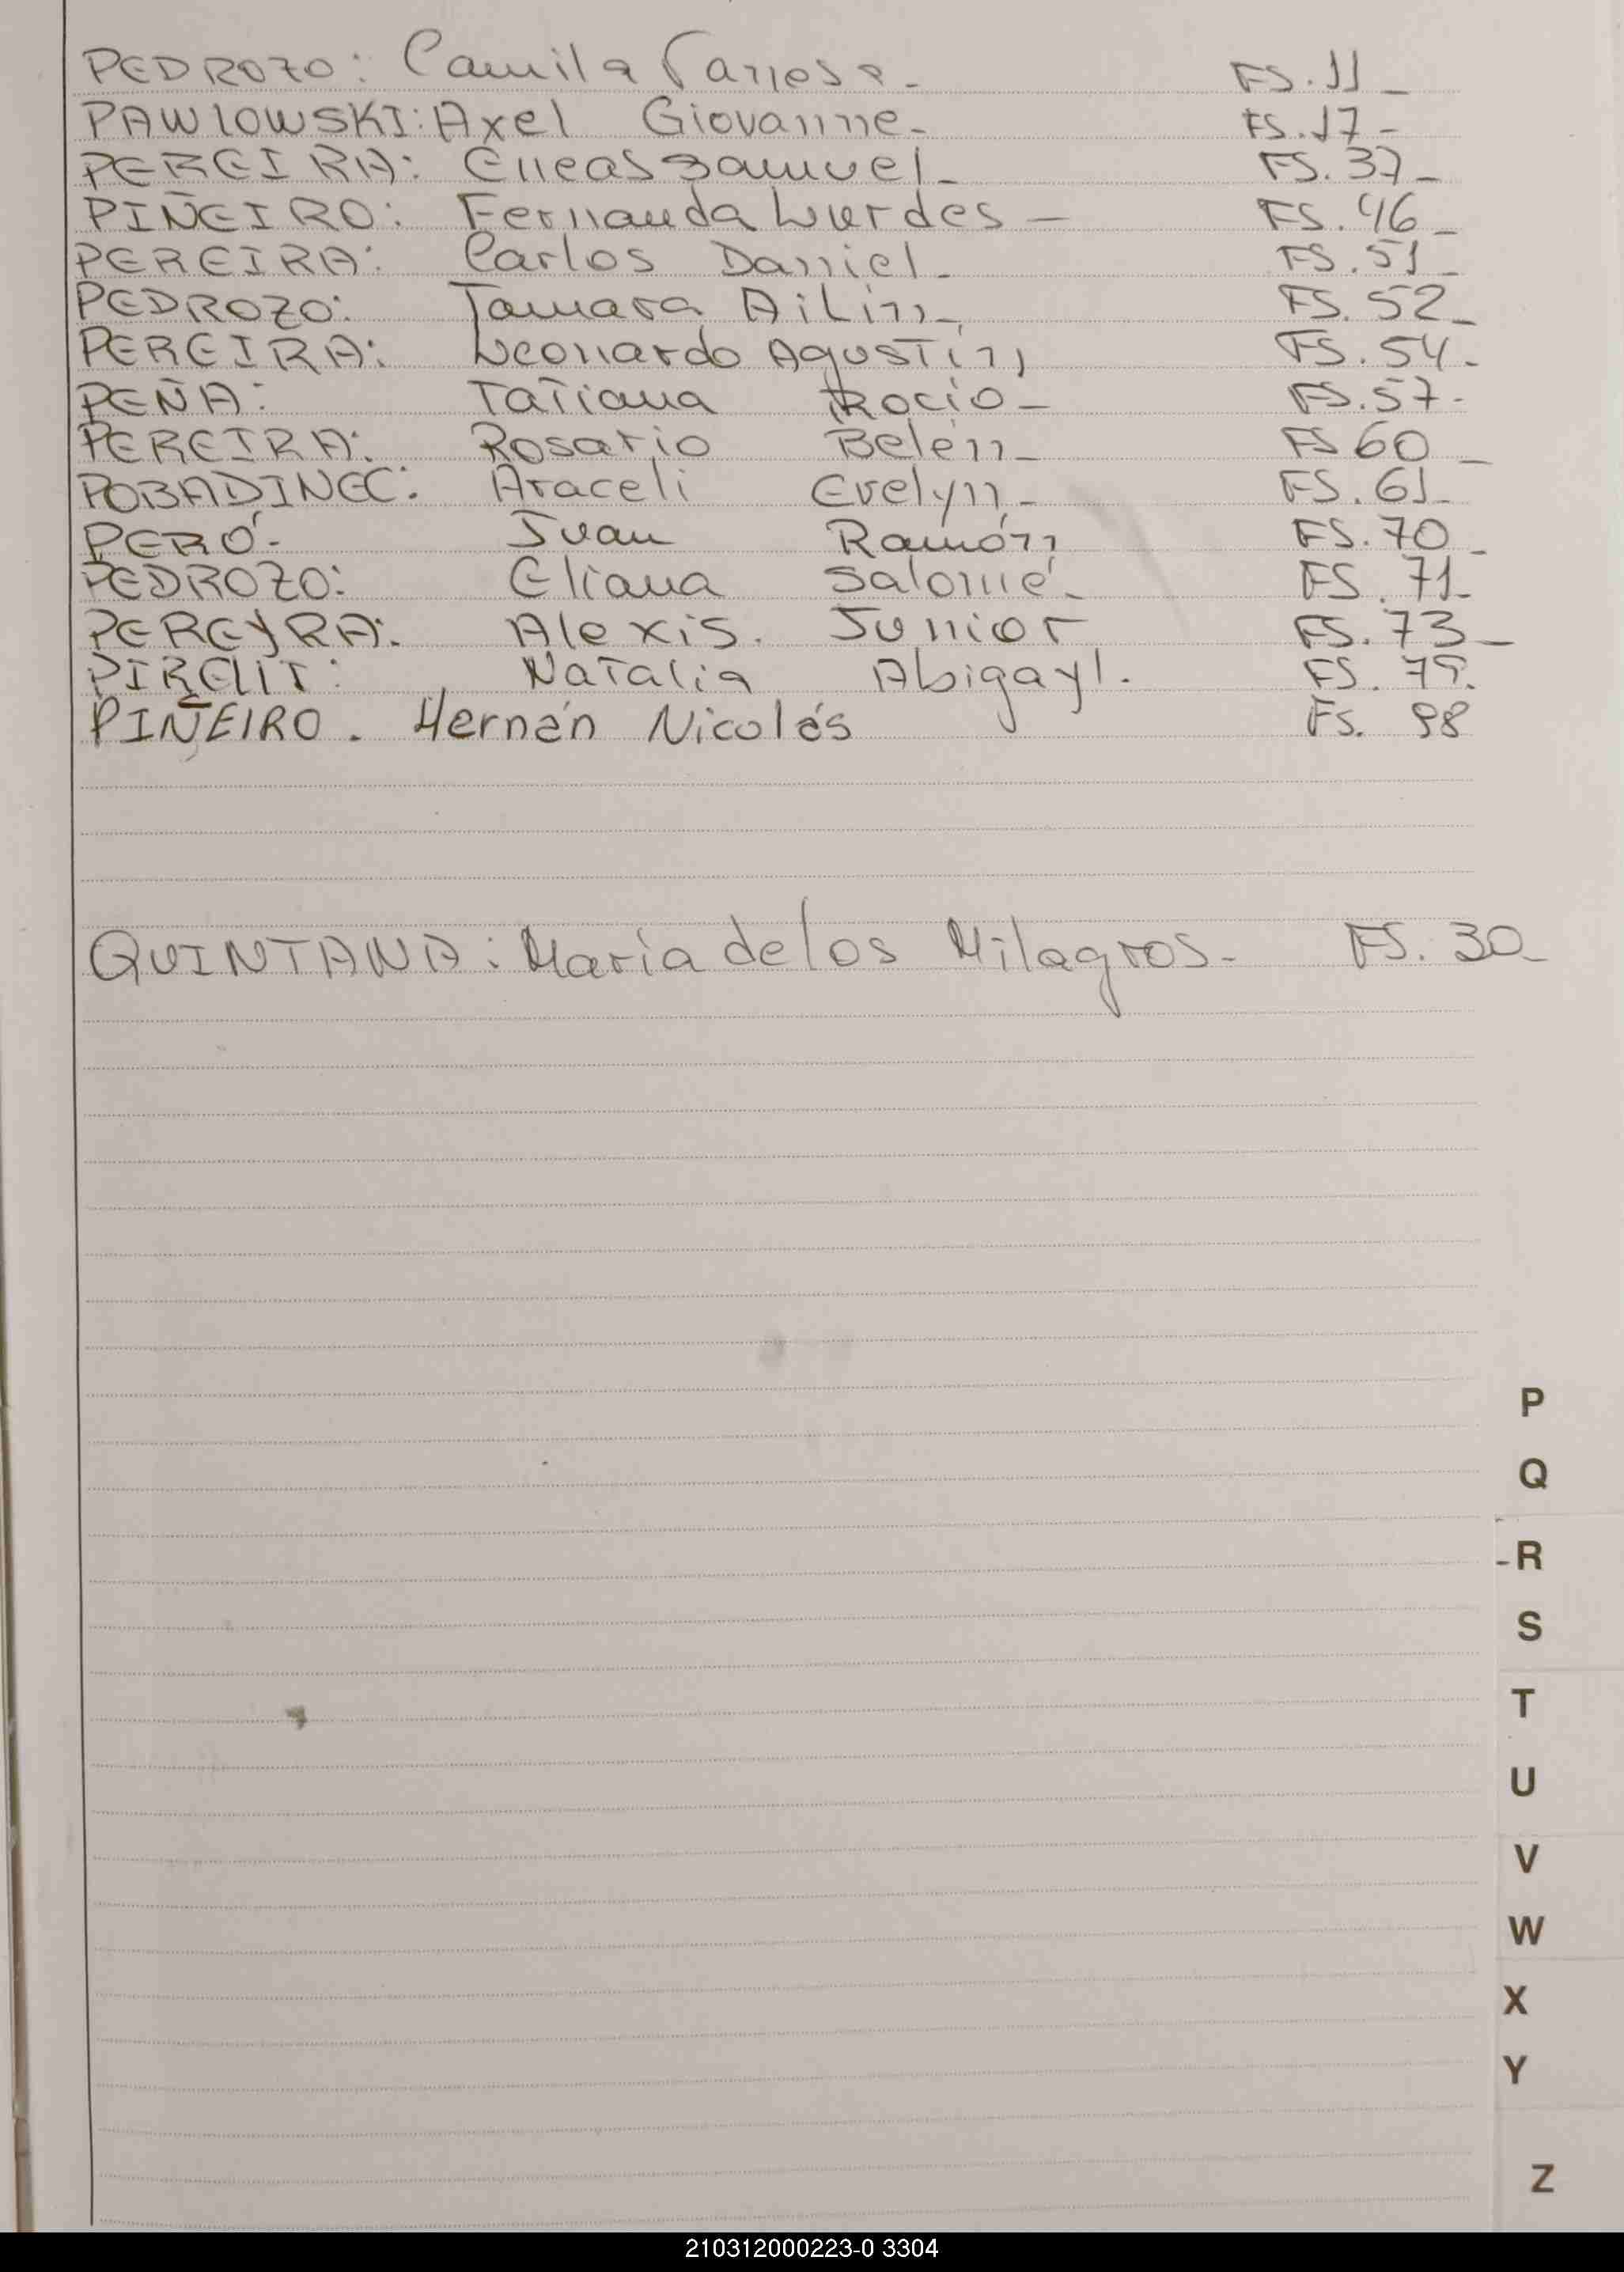 PEDROZO: Camila Vanesa - FS. 11 -
PAWLOWSKI: Axel Giovanne - FS. 17 -
PEREIRA: Eneas Samuel - FS. 37 -
PIÑEIRO: Fernanda Lurdes - FS. 46 -
PEREIRA: Carlos Daniel - FS. 51 -
PEDROZO: Tamara AiLin - FS. 52 -
PEREIRA: Leonardo Agustín FS. 54 -
PEÑA: Tatiana Rocio - FS. 57 -
PEREIRA: Rosario Belén - FS 60 -
POBADINEC: Araceli Evelyn - FS. 61 -
PERÓ - Juan Ramón FS. 70 -
PEDROZO: Eliana Salomé - FS. 71 -
PEREYRA: Alexis. Junior FS. 73 -
Natalia Abigayl. FS. 75.
PIÑEIRO. Hernán Nicolás Fs. 98
QUINTANA: María de los Milagros - FS. 30 -
P
Q
- R
S
T
U
V
W
X
Y
Z
210312000223-0 3304